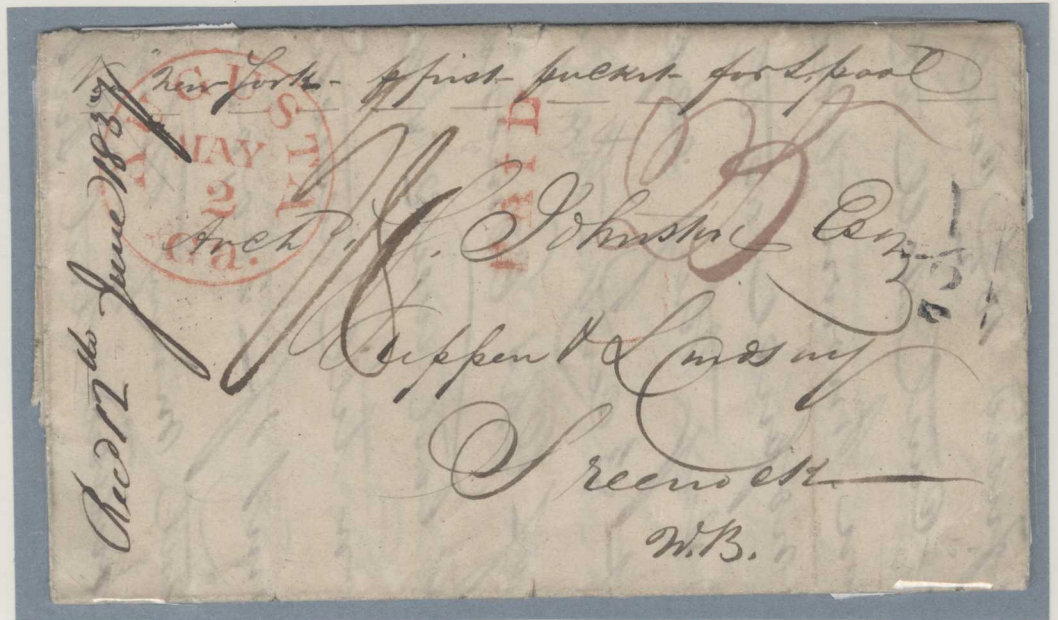 New York - p first packet for L.pool
AUGUSTA
MAY
2
Ga.
PAID
Archd. Johnston Esqr
Greenock
N.B.
Recd 12th June 1837